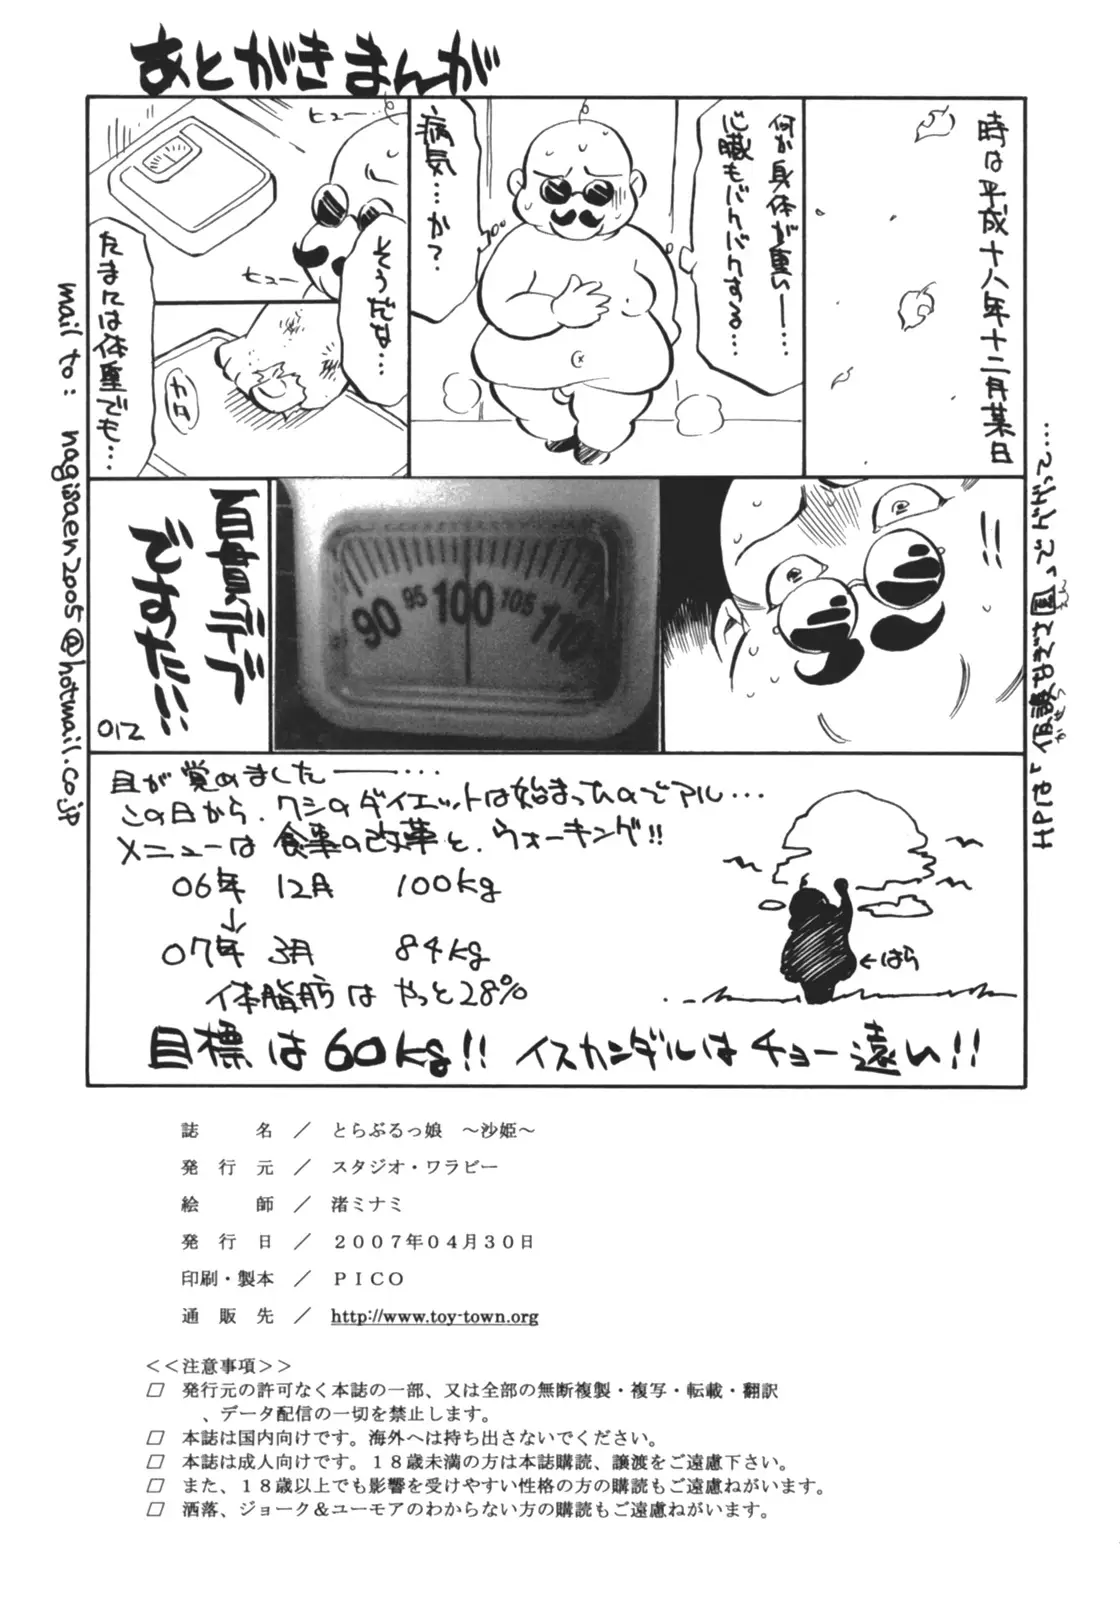 あとがきまんが
時は平成十八年十二月某日
何か身体が重い―…
心臓もバクバクする…
病気…か?
ヒュー…
そうだな…
ヒュー
たまには体重でも…
カタ
!!
90 95 100 105 110
百貫デブ
ですた!!
012
目が覚めました――…
この日から、ワシのダイエットは始まったのでアル…
メニューは食事の改革と、ウォーキング!!
06年 12月 100kg
↓
07年 3月 84kg
体脂肪はやっと28%
←はら
目標は60kg!! イスカンダルはチョー遠い!!
mail to: nagisaen2005@hotmail.co.jp
誌名／とらぶるっ娘 ～沙姫～
発行元／スタジオ・ワラビー
絵師／渚ミナミ
発行日／２００７年０４月３０日
印刷・製本／ＰＩＣＯ
通販先／http://www.toy-town.org
＜＜注意事項＞＞
□ 発行元の許可なく本誌の一部、又は全部の無断複製・複写・転載・翻訳
、データ配信の一切を禁止します。
□ 本誌は国内向けです。海外へは持ち出さないでください。
□ 本誌は成人向けです。１８歳未満の方は本誌購読、譲渡をご遠慮下さい。
□ また、１８歳以上でも影響を受けやすい性格の方の購読もご遠慮ねがいます。
□ 洒落、ジョーク＆ユーモアのわからない方の購読もご遠慮ねがいます。